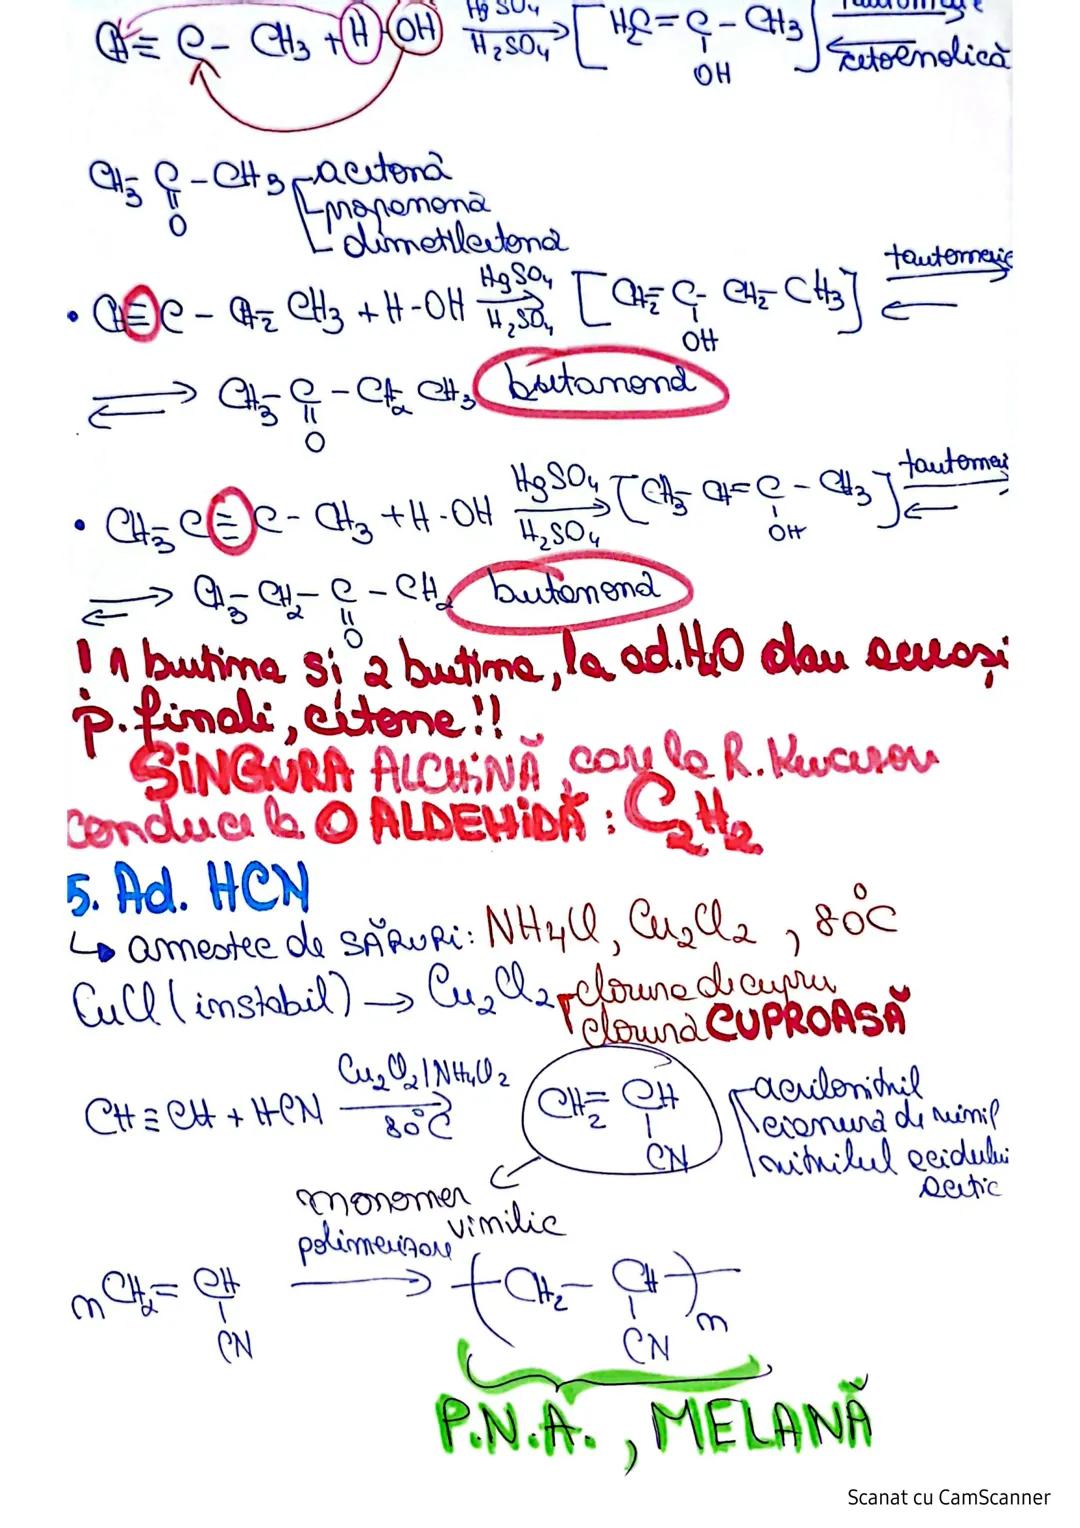 CH≡C-CH3 + H-OH HgSO4/H2SO4→ [H2C=C-CH3] tautomerie cetoenolică
OH
CH3-C-CH3 acetonă
O propanonă
dimetilcetonă
• CH≡C-CH2-CH3 + H-OH HgSO4/H2SO4→ [CH2=C-CH2-CH3] tautomerie
OH
⇌ CH3-C-CH2-CH3 butanonă
O
• CH3-C≡C-CH3 + H-OH HgSO4/H2SO4→ [CH3-CH=C-CH3] tautomeri
OH
⇌ CH3-CH2-C-CH3 butanonă
O
! 1 butina si 2 butina, la ad. H2O dau aceeași
p. finali, cetone !!
SINGURA ALCHINĂ, care la R. Kucerov
conduce la O ALDEHIDĂ : C2H2
5. Ad. HCN
↳ amestec de SĂRURI: NH4Cl, Cu2Cl2, 80°C
CuCl (instabil) → Cu2Cl2 clorura de cupru
clorură CUPROASĂ
CH≡CH + HCN Cu2Cl2/NH4Cl2 80°C→ CH2=CH acrilonitril
CN cianură de vinil
nitrilul acidului
monomer vinilic
polimerizare
nCH2=CH → (-CH2-CH-)n
CN CN
P.N.A., MELANĂ
Scanat cu CamScanner